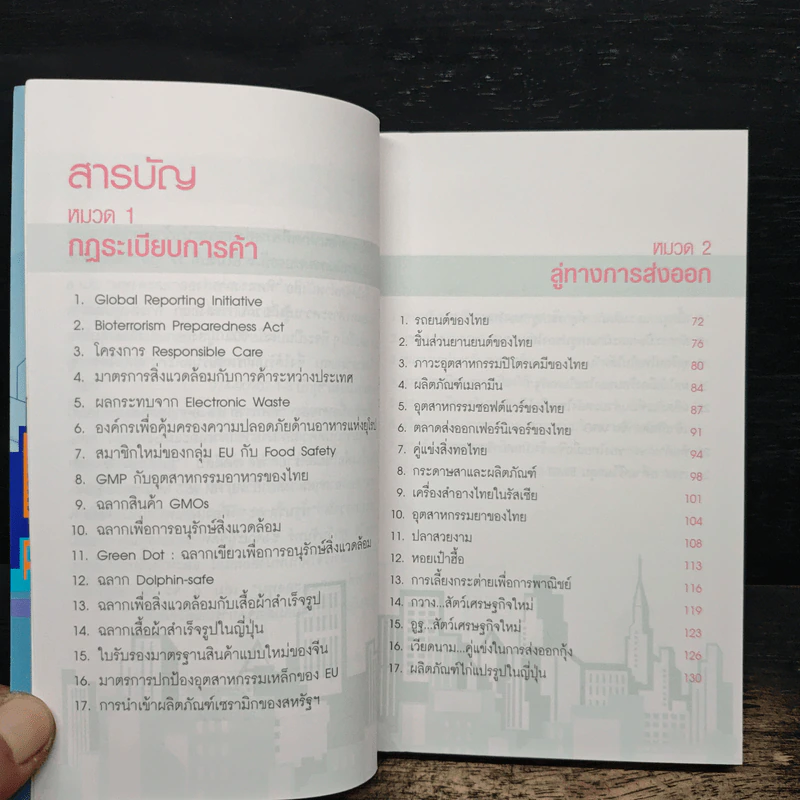 สารบัญ
หมวด 1
กฎระเบียบการค้า
1. Global Reporting Initiative
2. Bioterrorism Preparedness Act
3. โครงการ Responsible Care
4. มาตรการสิ่งแวดล้อมกับการค้าระหว่างประเทศ
5. ผลกระทบจาก Electronic Waste
6. องค์กรเพื่อคุ้มครองความปลอดภัยด้านอาหารแห่งยุโรป
7. สมาชิกใหม่ของกลุ่ม EU กับ Food Safety
8. GMP กับอุตสาหกรรมอาหารของไทย
9. ฉลากสินค้า GMOs
10. ฉลากเพื่อการอนุรักษ์สิ่งแวดล้อม
11. Green Dot : ฉลากเขียวเพื่อการอนุรักษ์สิ่งแวดล้อม
12. ฉลาก Dolphin-safe
13. ฉลากเพื่อสิ่งแวดล้อมกับเสื้อผ้าสำเร็จรูป
14. ฉลากเสื้อผ้าสำเร็จรูปในญี่ปุ่น
15. ใบรับรองมาตรฐานสินค้าแบบใหม่ของจีน
16. มาตรการปกป้องอุตสาหกรรมเหล็กของ EU
17. การนำเข้าผลิตภัณฑ์เซรามิกของสหรัฐฯ
หมวด 2
ลู่ทางการส่งออก
1. รถยนต์ของไทย 72
2. ชิ้นส่วนยานยนต์ของไทย 76
3. ภาวะอุตสาหกรรมปิโตรเคมีของไทย 80
4. ผลิตภัณฑ์เมลามีน 84
5. อุตสาหกรรมซอฟต์แวร์ของไทย 87
6. ตลาดส่งออกเฟอร์นิเจอร์ของไทย 91
7. คู่แข่งสิ่งทอไทย 94
8. กระดาษสาและผลิตภัณฑ์ 98
9. เครื่องสำอางไทยในรัสเซีย 101
10. อุตสาหกรรมยาของไทย 104
11. ปลาสวยงาม 108
12. หอยเป๋าฮื้อ 113
13. การเลี้ยงกระต่ายเพื่อการพาณิชย์ 116
14. กวาง...สัตว์เศรษฐกิจใหม่ 119
15. อูฐ...สัตว์เศรษฐกิจใหม่ 123
16. เวียดนาม...คู่แข่งในการส่งออกกุ้ง 126
17. ผลิตภัณฑ์ไก่แปรรูปในญี่ปุ่น 130